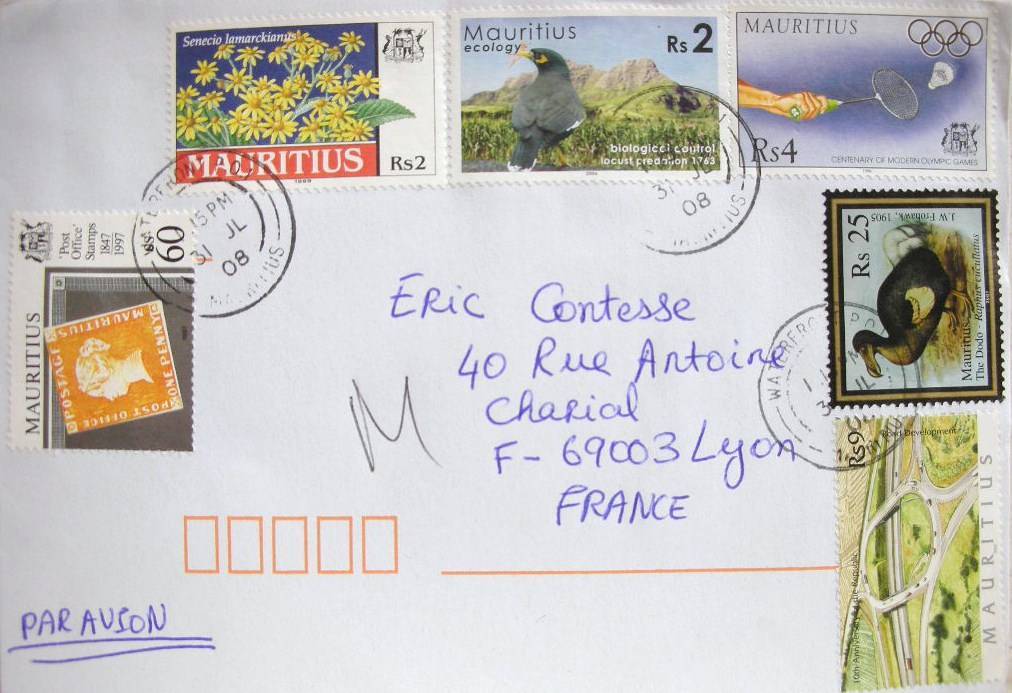 Senecio lamarckianus
MAURITIUS
Rs2
1989
Mauritius
ecology
Rs 2
biological control
locust predation 1763
MAURITIUS
Rs4
CENTENARY OF MODERN OLYMPIC GAMES
31 JL
08
MAURITIUS
15 PM
31 JL
08
MAURITIUS
'Post
Office'
Stamps
1847
1997
60
MAURITIUS
POSTAGE
MAURITIUS
ONE PENNY
POST OFFICE
J.W Frohawk, 1905
Rs 25
Mauritius
The Dodo - Raphus cucullatus
WATERFRO
Eric Contesse
40 Rue Antoine
Charial
F-69003 Lyon
FRANCE
M
Rs9
Road Development
10th Anniversary of the Republic
MAURITIUS
PAR AVION